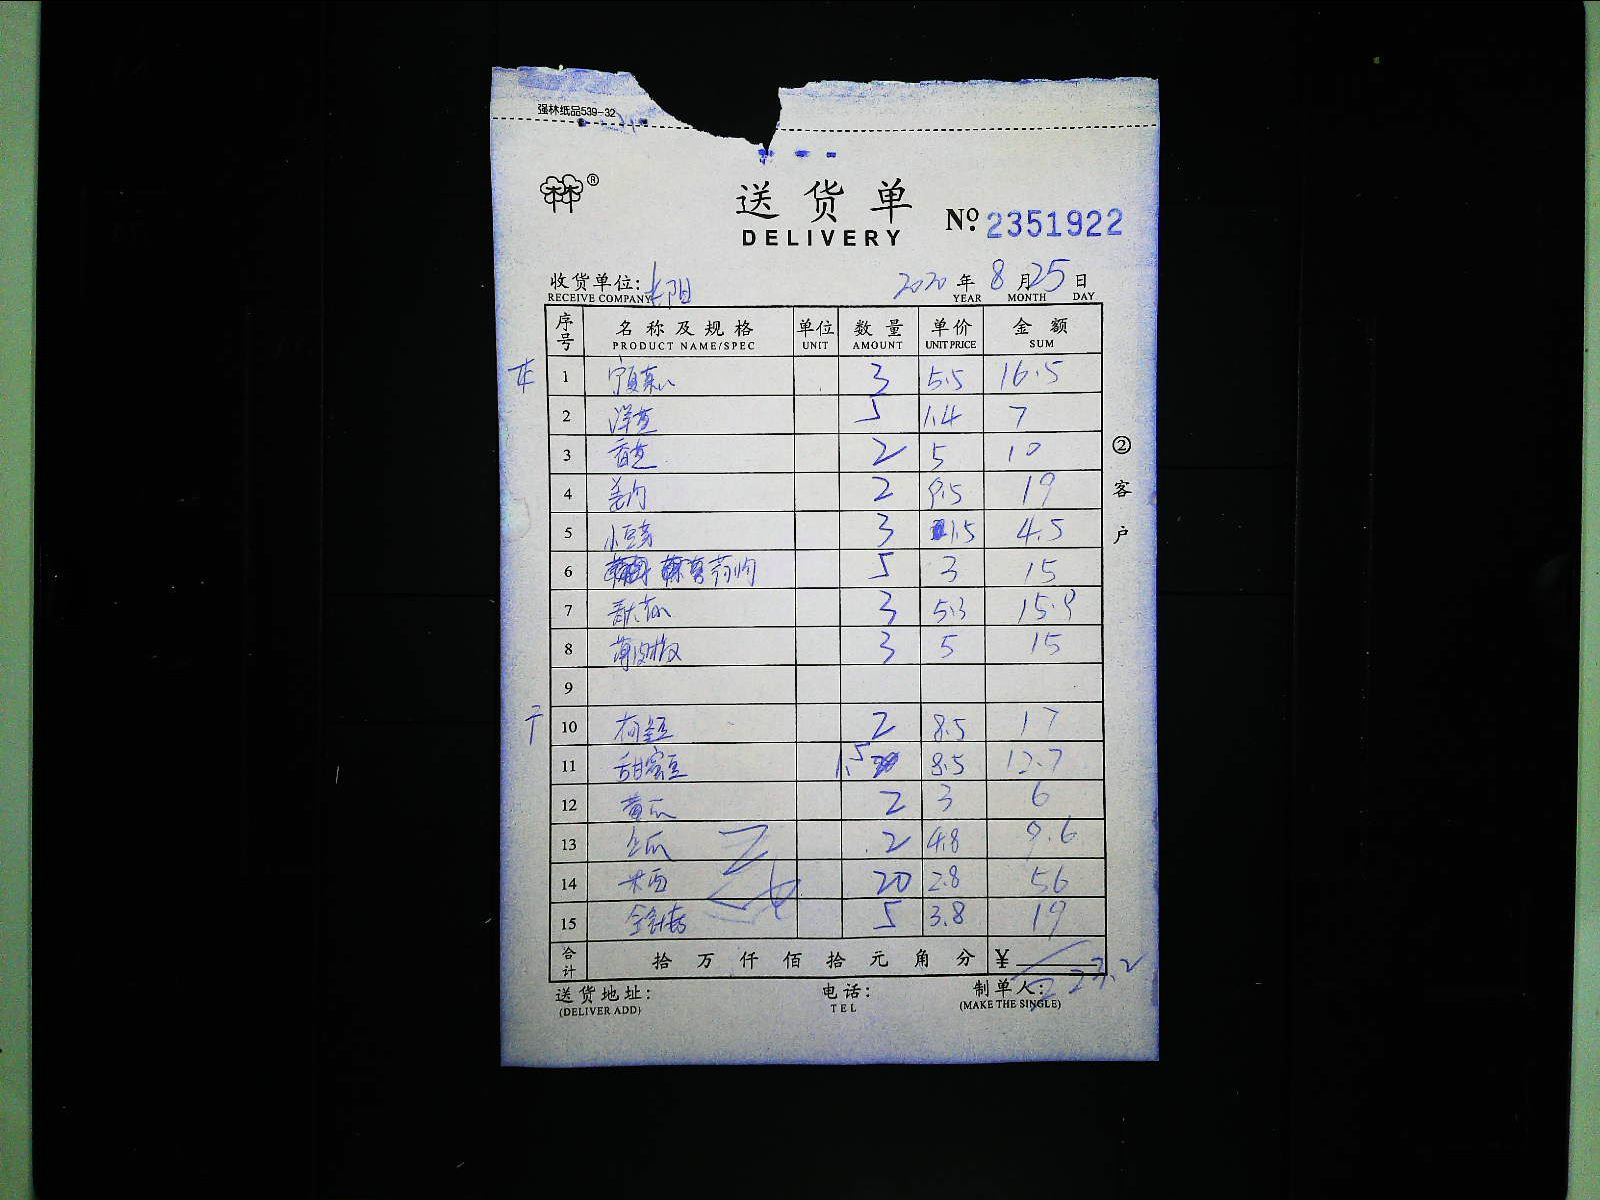 强林纸品539-32
林林®
送货单
DELIVERY
№ 2351922
收货单位: 长阳 2020 年 8 月 25 日
RECEIVE COMPANY YEAR MONTH DAY
序号 名称及规格 单位 数量 单价 金额
PRODUCT NAME/SPEC UNIT AMOUNT UNIT PRICE SUM
1 宁夏菜心 3 5.5 16.5
2 洋葱 5 1.4 7
3 香葱 2 5 10
4 姜肉 2 9.5 19
5 小豆芽 3 1.5 4.5
6 5 3 15
7 3 5.3 15.9
8 薄皮椒 3 5 15
9
10 荷兰豆 2 8.5 17
11 甜蜜豆 1.5 8.5 12.7
12 黄瓜 2 3 6
13 2 4.8 9.6
14 20 2.8 56
15 金针菇 5 3.8 19
合计 拾 万 仟 佰 拾 元 角 分 ¥ 223.2
送货地址: 电话: 制单人:
(DELIVER ADD) TEL (MAKE THE SINGLE)
②客户